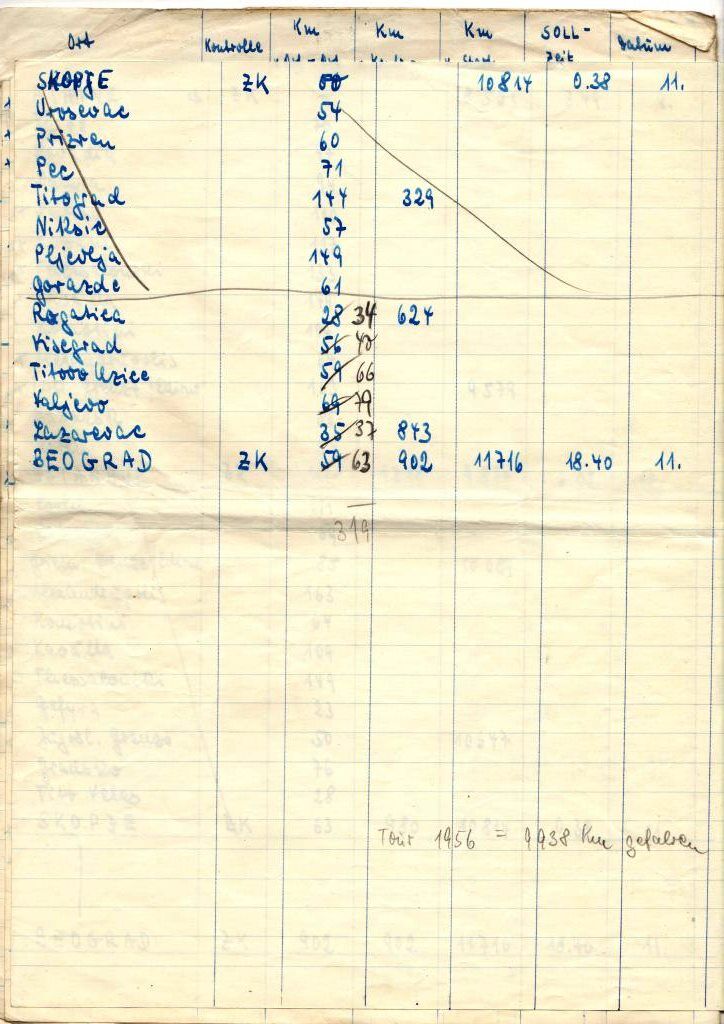 Ort Kontrolle Km Km Km SOLL- Datum
Zeit
SKOPJE ZK 10814 0.38 11.
Urosevac 54
Prizren 60
Pec 71
Titograd 144 329
Niksic 57
Pljevlja 149
Gorazde 61
Rogatica 28 34 624
Visegrad 56
Titovo Uzice 59 66
Valjevo 69 79
Lazarevac 35 37 843
BEOGRAD ZK 59 63 902 11716 18.40 11.
319
Tour 1956 = 9938 Km gefahren